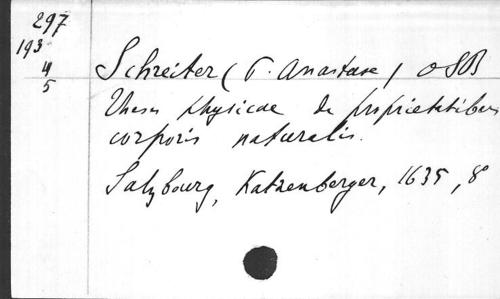 297
193
4
5
Schreiter (P. Anastase) OSB
Theses physicae de proprietatibus
corporis naturalis.
Salzbourg, Katzenberger, 1635, 8°